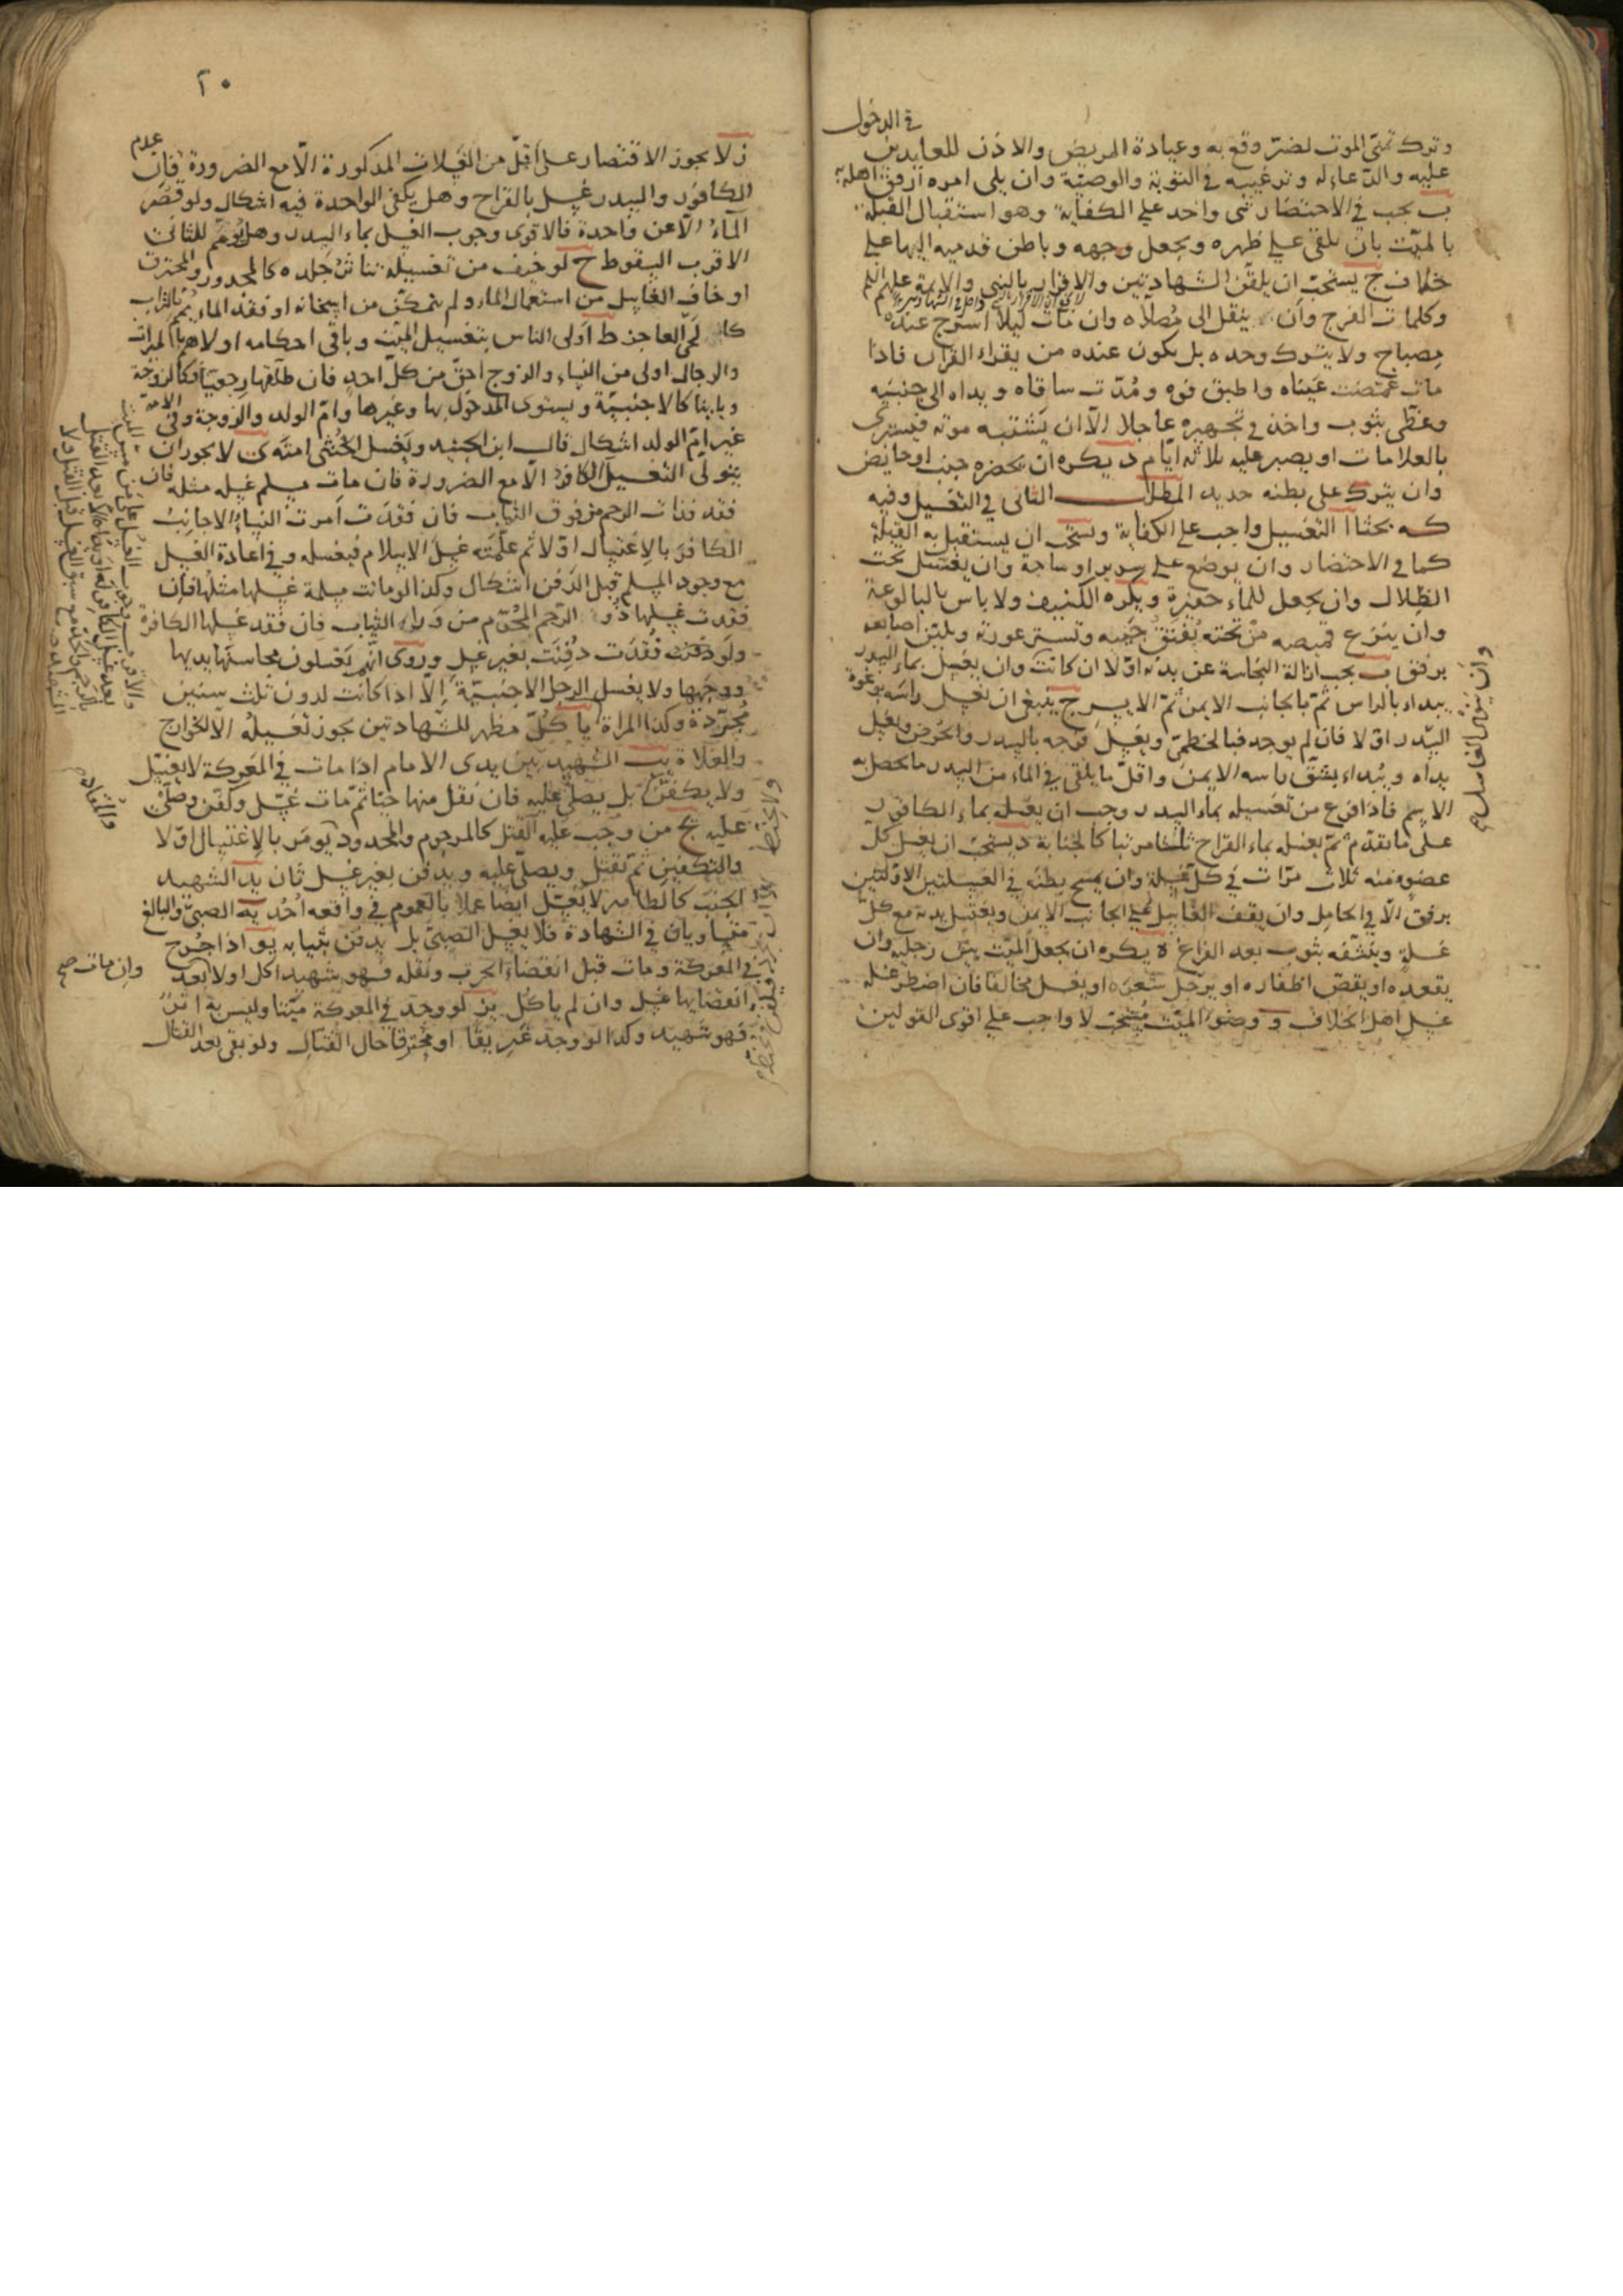 في الدخول
وترك تمنى الموت لضر وقع به وعيادة المريض والاذن للعايدين
عليه والدعاء له وترغيبه في التوبة والوصية وان يلى امره ارفق اهله به
ب يجب في الاحتضار شى واحد على الكفاية وهو استقبال القبلة
بالميت بان يلقى على ظهره ويجعل وجهه وباطن قدميه اليها على
خلاف ج يستحب ان يلقن الشهادتين والاقرار بالنبى والائمة عليهم السلم
وكلمات الفرج وان ينقل الى مصلاه وان مات ليلا اسرج عنده
مصباح ولا يترك وحده بل يكون عنده من يقراء القران فاذا
مات غمضت عيناه واطبق فوه ومدت ساقاه ويداه الى جنبيه
وغطى بثوب واخذ في تجهيزه عاجلا الا ان يشتبه موته فيستبرى
بالعلامات او يصبر عليه ثلاثه ايام د يكره ان يحضره جنب او حايض
وان يترك على بطنه حديد المطلب الثانى في التغسيل وفيه
كه بحثا ا التغسيل واجب على الكفاية ويستحب ان يستقبل به القبلة
كما في الاحتضار وان يوضع على سرير او ساجة وان يغتسل تحت
الظلال وان يجعل للماء حفيرة ويكره الكنيف ولا باس بالبالوعة
وان ينزع قميصه من تحته يفتق جيبه وتستر عورته ويلين اصابعه
برفق ب يجب ازالة النجاسة عن بدنه اولا ان كانت وان يغسل بماء السدر
يبداء بالراس ثم بالجانب الايمن ثم الايسر ج ينبغى ان يغسل راسه برغوة
السدر اولا فان لم يوجد فبالخطمى ويغسل فرجه بالسدر والحرض ويغسل
يداه ويبداء بشق راسه الايمن واقل ما يلقى في الماء من السدر ما يحصل به
الاسم فاذا فرغ من تغسيله بماء السدر وجب ان يغسله بماء الكافور
على ما تقدم ثم يغسله بماء القراح ثالثا مرتبا كالجنابة د يستحب ان يغسل كل
عضو منه ثلاث مرات في كل غسلة وان يمسح بطنه في الغسلتين الاولتين
برفق الا في الحامل وان يقف الغاسل على الجانب الايمن ويغسل يديه مع كل
غسلة وينشفه بثوب بعد الفراغ ه يكره ان يجعل الميت بين رجليه وان
يقعده او يقص اظفاره او يرجل شعره او يغسل مخالفا فان اضطر غسله
غسل اهل الخلاف و وضوء الميت مستحب لا واجب على اقوى القولين
٢٠
ز لا يجوز الاقتصار على اقل من الغسلات المذكورة الا مع الضرورة فان عدم
الكافور والسدر غسل بالقراح وهل يكفى الواحدة فيه اشكال ولو قصر
الماء الا عن واحدة فالاقوى وجوب الغسل بماء السدر وهل يؤمم للثانى
الاقرب السقوط ح لو خيف من تغسيله تناثر جلده كالمجدور والمحترق
او خاف الغاسل من استعمال الماء ولم يتمكن من اسخانه او فقد الماء يمم بالتراب
كالحى العاجز ط اولى الناس بتغسيل الميت وباقى احكامه اولاهم بالميراث
والرجال اولى من النساء والزوج احق من كل احد فان طلقها رجعيا فكالزوجة
وباينا كالاجنبية ويستوى المدخول بها وغيرها وام الولد والزوجة وفى الامة
غير ام الولد اشكال قال ابن الجنيد ويغسل الخنثى امته ى لا يجوز ان
يتولى التغسيل الكافر الا مع الضرورة فان مات مسلم غسله مثله فان
فقد فذات الرحم من فوق الثياب فان فقدت امرت النساء الاجانب
الكافر بالاغتسال اولا ثم علمته غسل الاسلام فيغسله وفي اعادة الغسل
مع وجود المسلم قبل الدفن اشكال وكذا لو ماتت مسلمة غسلها مثلها فان
فقدت غسلها ذو الرحم المحرم من وراء الثياب فان فقد غسلها الكافرة
ولو فقدت دفنت بغير غسل وروى انهم يغسلون محاسنها يديها
ووجهها ولا يغسل الرجل الاجنبية الا اذا كانت لدون ثلث سنين
مجردة وكذا المراة يا كل مظهر للشهادتين يجوز تغسيله الا الخوارج
والغلاة يب الشهيد بين يدى الامام اذا مات في المعركة لا يغسل
ولا يكفن بل يصلى عليه فان نقل منها حيا ثم مات غسل وكفن وصلى
عليه يج من وجب عليه القتل كالمرجوم والمحدود يومر بالاغتسال اولا
والتكفين ثم يقتل ويصلى عليه ويدفن بغير غسل ثان يد الشهيد
الجنب كالطاهر لا يغسل ايضا عملا بالعموم في واقعه احد يه الصبى والبالغ
متساويان في الشهادة فلا يغسل الصبى بل يدفن بثيابه يو اذا جرح
في المعركة ومات قبل انقضاء الحرب ونقله فهو شهيد اكل اولا وبعد
انقضايها غسل وان لم ياكل يز لو وجد في المعركة ميتا وليس به اثر
فهو شهيد وكذا لو وجد غريقا او محترقا حال القتال ولو بقى بعد القتال
وان مات صح